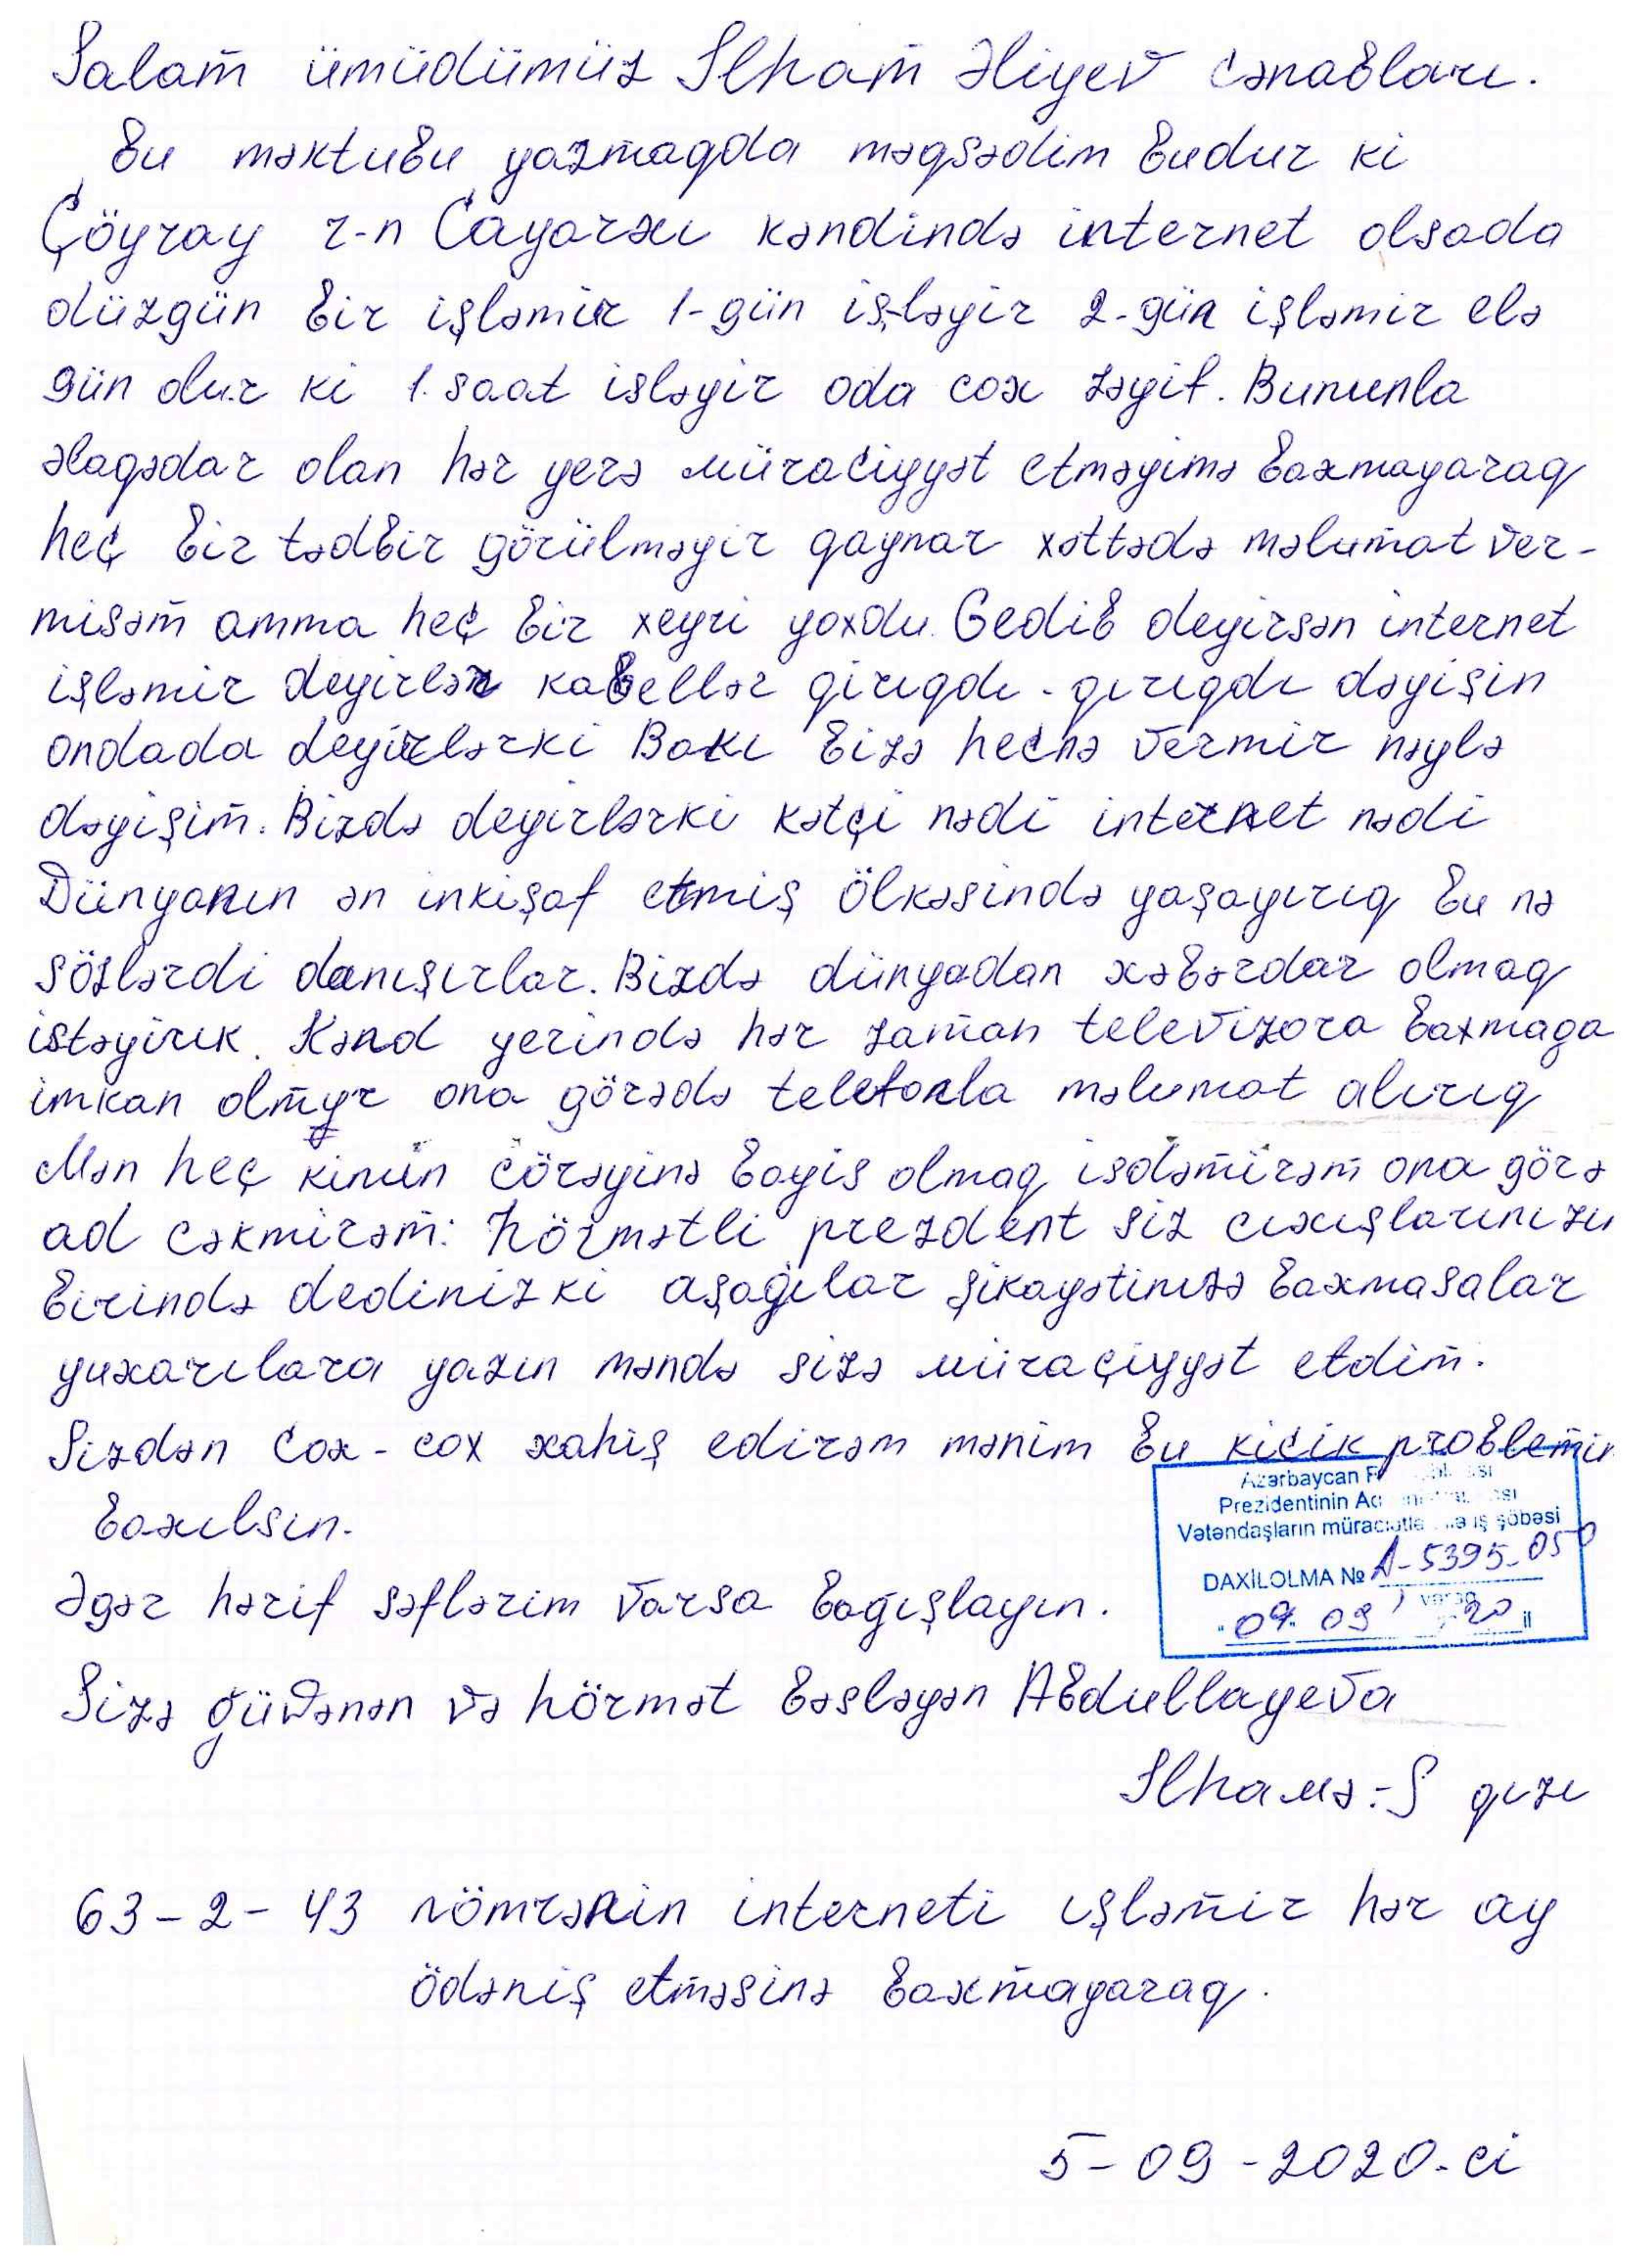 Salam ümüdümüz İlham Əliyev cənabları.
Bu məktubu yazmaqda məqsədim budur ki
Çöyçay r-n Çayarxı kəndində internet olsada
düzgün bir işləmir 1-gün işləyir 2-gün işləmir elə
gün olur ki 1. saat isləyir oda cox zəyif. Bununla
əlaqədar olan hər yerə müraciyyət etməyimə baxmayaraq
heç bir tədbir görülməyir qaynar xəttədə məlumat ver-
misəm amma heç bir xeyri yoxdu. Gedib deyirsən internet
işləmir deyirlər kabellər qırıqdı - qırıqdı dəyişin
ondada deyirlərki Bakı bizə hecnə vermir nəylə
dəyişim. Bizdə deyirlərki kətçi nədi internet nədi
Dünyanın ən inkişaf etmiş ölkəsində yaşayırıq bu nə
sözlərdi danışırlar. Bizdə dünyadan xəbərdar olmaq
istəyirik. Kənd yerində hər zaman televizora baxmaga
imkan olmyr ona görədə telefonla məlumat alırıq
Mən heç kimin çörəyinə bayis olmaq isdəmirəm ona görə
ad cəkmirəm. hörmətli prezdent siz cıxışlarınızu
birində dedinizki aşağılar şikayətinizə baxmasalar
yuxarılara yazın məndə sizə müraçiyyət etdim.
Sizdən cox - cox xahiş edirəm mənim bu kicik problemim
baxılsın.
Azərbaycan
Prezidentinin
Vətəndaşların iş şöbəsi
DAXİLOLMA № A-5395-050
09. 09 20 il
Əgər hərif səflərim varsa bağışlayın.
Sizə güvənən və hörmət bəsləyən Abdullayeva
İlhamə: S qızı
63-2-43 nömrənin interneti ışləmir hər ay
ödəniş etməsinə baxmayaraq.
5-09-2020-ci